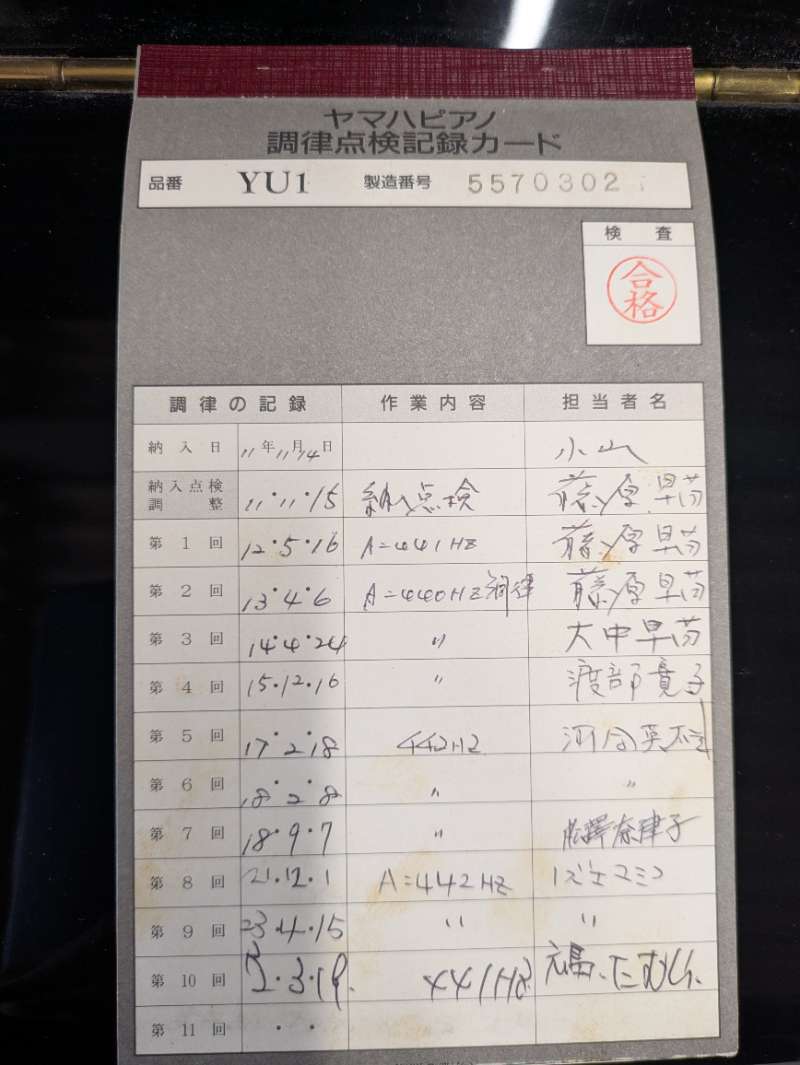 ヤマハピアノ
調律点検記録カード
品番 YU1 製造番号 5570302
検査
合格
調律の記録 作業内容 担当者名
納入日 11年11月14日 小山
納入点検調整 11・11・15 納入点検 藤原早苗
第1回 12・5・16 A=441HZ 藤原早苗
第2回 13・4・6 A=440HZ調律 藤原早苗
第3回 14・4・24 〃 大中早苗
第4回 15・12・16 〃 渡部寛子
第5回 17・2・18 442HZ
第6回 18・2・8 〃 〃
第7回 18・9・7 〃 奈津子
第8回 21・12・1 A=442HZ
第9回 23・4・15 〃 〃
第10回 ・3・19 441HZ
第11回 ・ ・